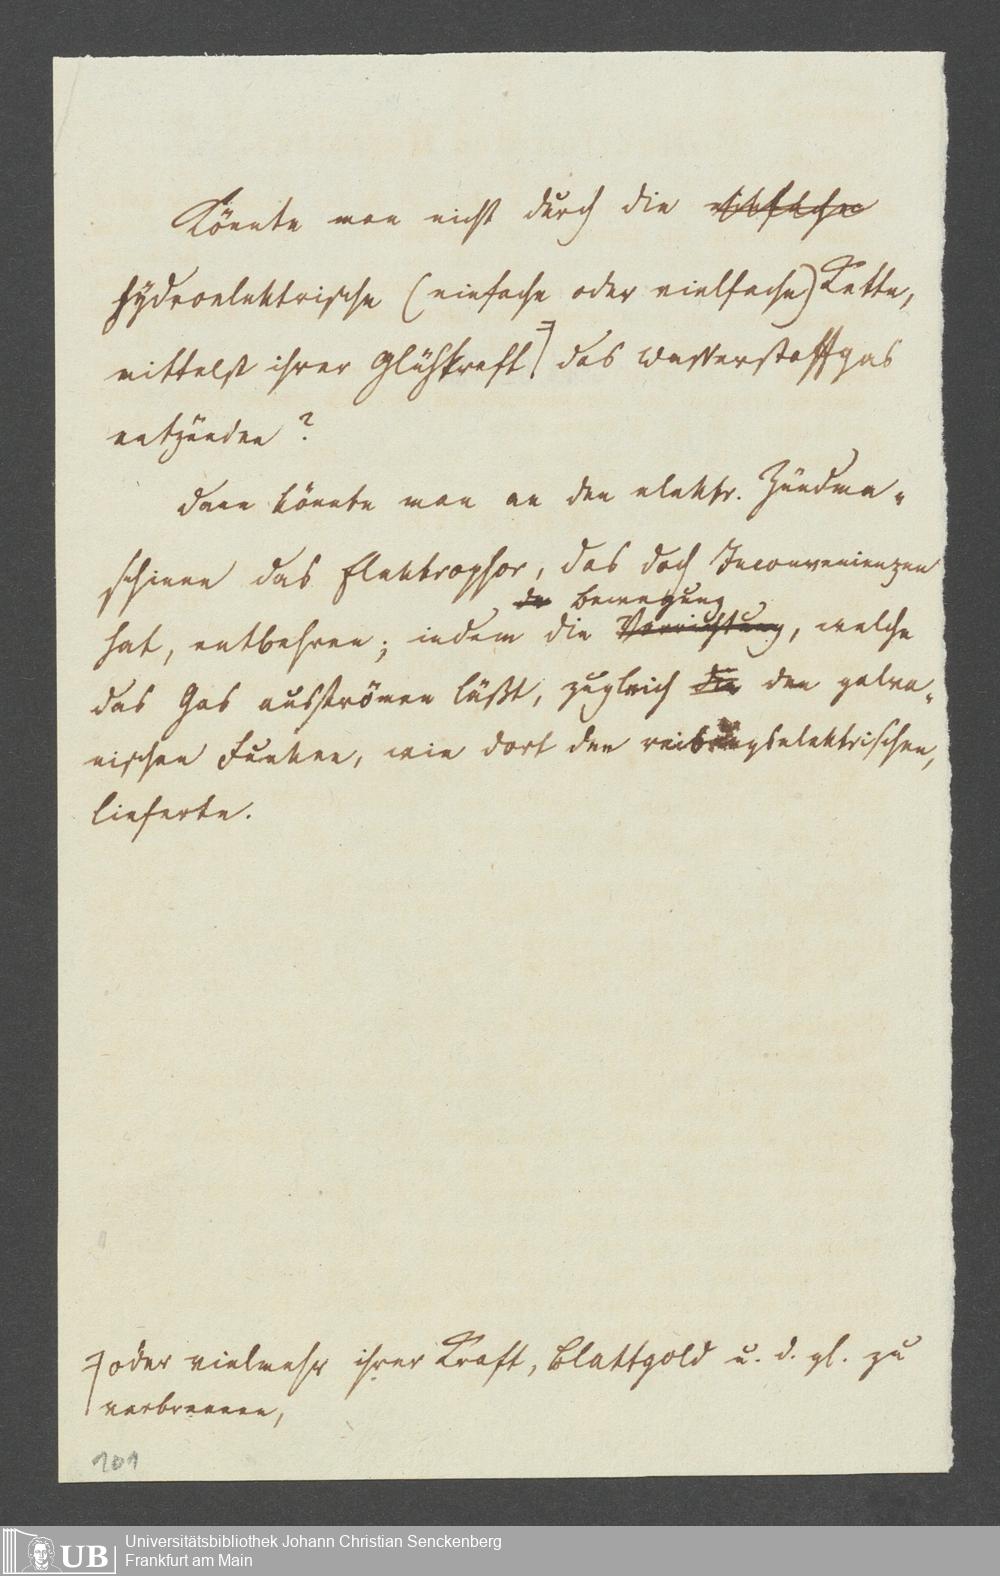 Könnte man nicht durch die vielfache
hydroelektrische (einfache oder vielfache) Kette,
mittelst ihrer Glühkraft das Wasserstoffgas
entzünden?
Dann könnte man an den elektr. Zündma-
schinen das Elektrophor, das doch Inconvenienzen
Bewegung
hat, entbehren; indem die Vorrichtung, welche
das Gas ausströmen läßt, zugleich die den galva-
nischen Funken, wie dort den reibungselektrischen,
lieferte.
oder vielmehr ihrer Kraft, Blattgold u. d. gl. zu
verbrennen,
101
UB
Universitätsbibliothek Johann Christian Senckenberg
Frankfurt am Main